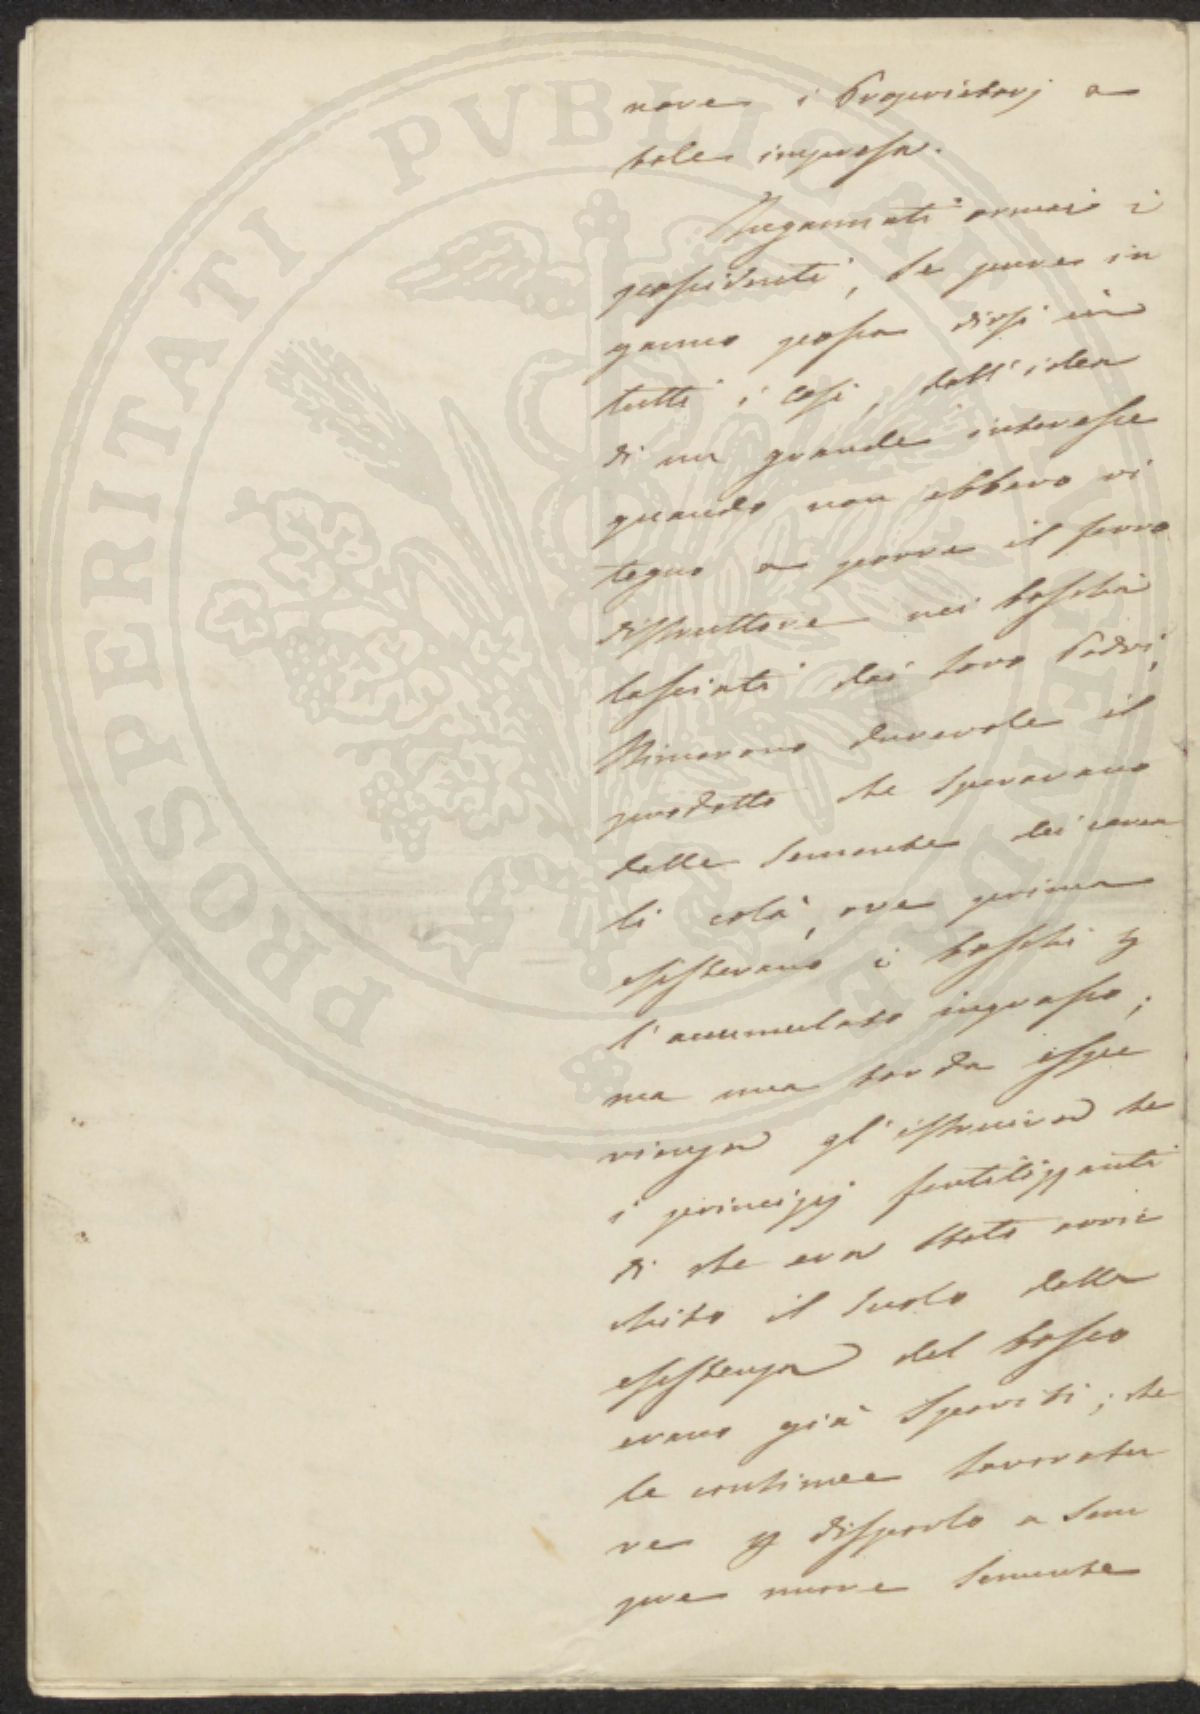 PROSPERITATI PVBLICAE AVGENDAE
nare i Proprietarj a
tale impresa.
Ingannati ormai i
possidenti, se pure in
ganno possa dirsi in
tutti i casi, dall'idea
di un grande interesse
quando non ebbero ri
tegno a porre il ferro
distruttore nei boschi
lasciati dai loro Padri,
stimarono durevole il
prodotto che speravano
dalle semente dei cerea
li colà, ove prima
esistevano i boschi p
l'accumulato ingrasso;
ma una tarda espe
rienza gl'istruiva che
i principj fertilizzanti
di che era stato arric
chito il suolo dalla
esistenza del bosco
erano già spariti; che
le continue lavoratu
re p disporlo a sem
pre nuove semente